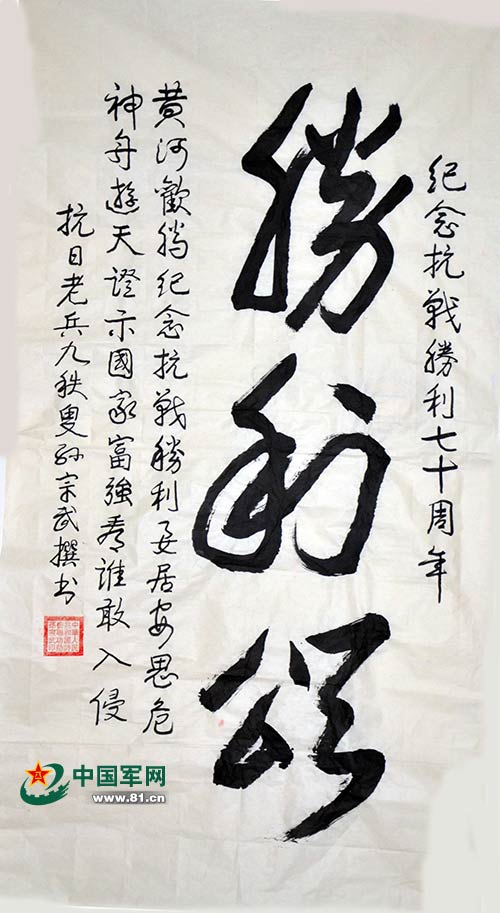 纪念抗戰勝利七十周年
勝利頌
黄河歡腾纪念抗戰勝利要居安思危
神舟遊天證示國家富強看誰敢入侵
抗日老兵九秩叟孙宗武撰书
中国军网
www.81.cn